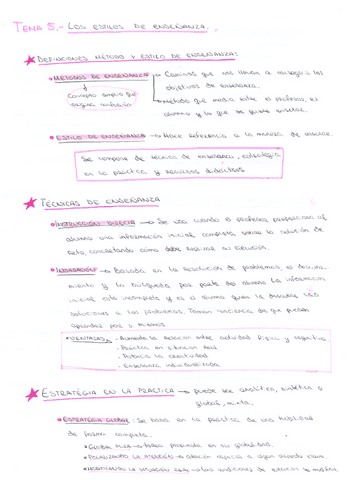 TEMA 5.- LOS ESTILOS DE ENSEÑANZA.
DEFINICIONES MÉTODO Y ESTILO DE ENSEÑANZA:
• MÉTODOS DE ENSEÑANZA → Caminos que nos llevan a conseguir los
objetivos de enseñanza.
Concepto amplio que
→ Método que media entre el profesor, el
alumno y lo que se quiere enseñar.
• ESTILO DE ENSEÑANZA → Hace referencia a la manera de enseñar.
Se compone de técnica de enseñanza, estrategia
en la práctica y recursos didácticos
TÉCNICAS DE ENSEÑANZA
• INSTRUCCIÓN DIRECTA → Se usa cuando el profesor proporciona al
alumno una información inicial completa sobre la solución del
reto, concretando cómo debe realizar su ejecución.
• INDAGACIÓN → Basada en la resolución de problemas, el descubri-
miento y la búsqueda por parte del alumno. La información
inicial está incompleta y es el alumno quien la descubre LAS
soluciones a los problemas. Toman conciencia de que pueden
aprender por sí mismos.
• VENTAJAS - Aumenta la relación entre actividad física y cognitiva
- Práctica en situación real
- la creatividad
- Enseñanza individualizada.
ESTRATEGIA EN LA PRÁCTICA → puede ser analítica, sintética o
global, mixta.
• ESTRATEGIA GLOBAL: Se basa en la práctica de una habilidad
de forma completa.
• GLOBAL PURA → tarea propuesta en su globalidad.
• POLARIZANDO LA ATENCIÓN → atención respecto a algún aspecto clave.
• MODIFICANDO LA SITUACIÓN REAL → las condiciones de ejecución se modifican.